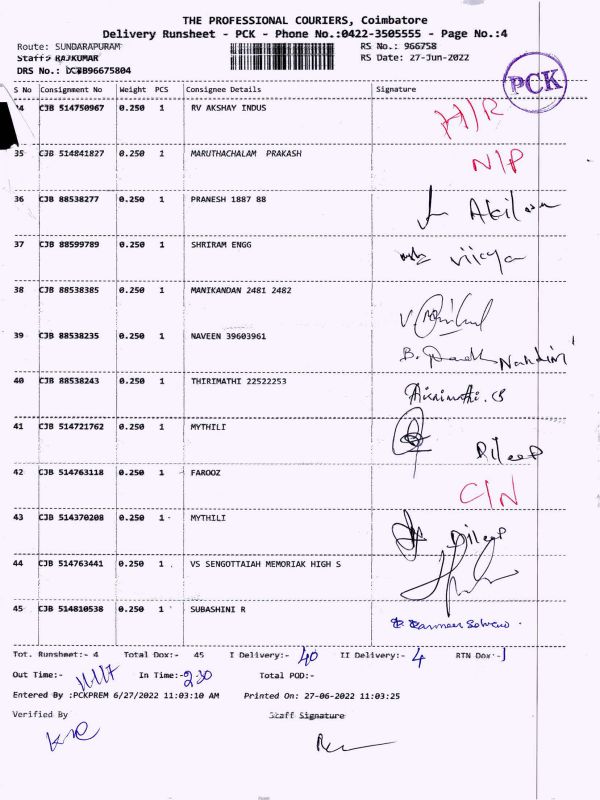 THE PROFESSIONAL COURIERS, Coimbatore
Delivery Runsheet - PCK - Phone No.:0422-3505555 - Page No.:4
Route: SUNDARAPURAM RS No.: 966758
Staff: RAJKUMAR RS Date: 27-Jun-2022
DRS No.: DCJB96675804
PCK
S No Consignment No Weight PCS Consignee Details Signature
34 CJB 514750967 0.250 1 RV AKSHAY INDUS H/R
35 CJB 514841827 0.250 1 MARUTHACHALAM PRAKASH N/P
36 CJB 88538277 0.250 1 PRANESH 1887 88
37 CJB 88599789 0.250 1 SHRIRAM ENGG vijaya
38 CJB 88538385 0.250 1 MANIKANDAN 2481 2482
39 CJB 88538235 0.250 1 NAVEEN 39603961 B. Nandini
40 CJB 88538243 0.250 1 THIRIMATHI 22522253
41 CJB 514721762 0.250 1 MYTHILI Dileep
42 CJB 514763118 0.250 1 FAROOZ C/N
43 CJB 514370208 0.250 1 MYTHILI Dileep
44 CJB 514763441 0.250 1 VS SENGOTTAIAH MEMORIAK HIGH S
45 CJB 514810538 0.250 1 SUBASHINI R
Tot. Runsheet:- 4 Total Dox:- 45 I Delivery:- 40 II Delivery:- 4 RTN Dox:- 1
Out Time:- In Time:- 2:30 Total POD:-
Entered By :PCKPREM 6/27/2022 11:03:10 AM Printed On: 27-06-2022 11:03:25
Verified By Staff Signature